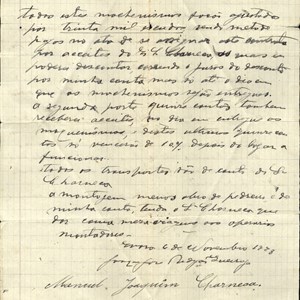 todos estes machenismos forão ajustado
por trinta mil escudos sendo metade
pagos no ato de se assignar este contrato
por accaites do Sr Charneca
podera descontar sendo o juro do desconto
por minha conta mas só até o dia em
que os machenismos sejão entregues.
a segunda parte quinze contos tambem
recebera acceites, no dia em entregue os
maquenismos, destes ultimos quinze con-
tos si vencerão de 10% depois do logar a
funcionar.
todos os transportes são de conta do Sr
Charneca
a montajem menos obra de pedreiro é de
minha conta, tendo o Sr Charneca que
dar cama aos operarios
montadores.
6 de Novembro 1920
Manuel Joaquim Charneca